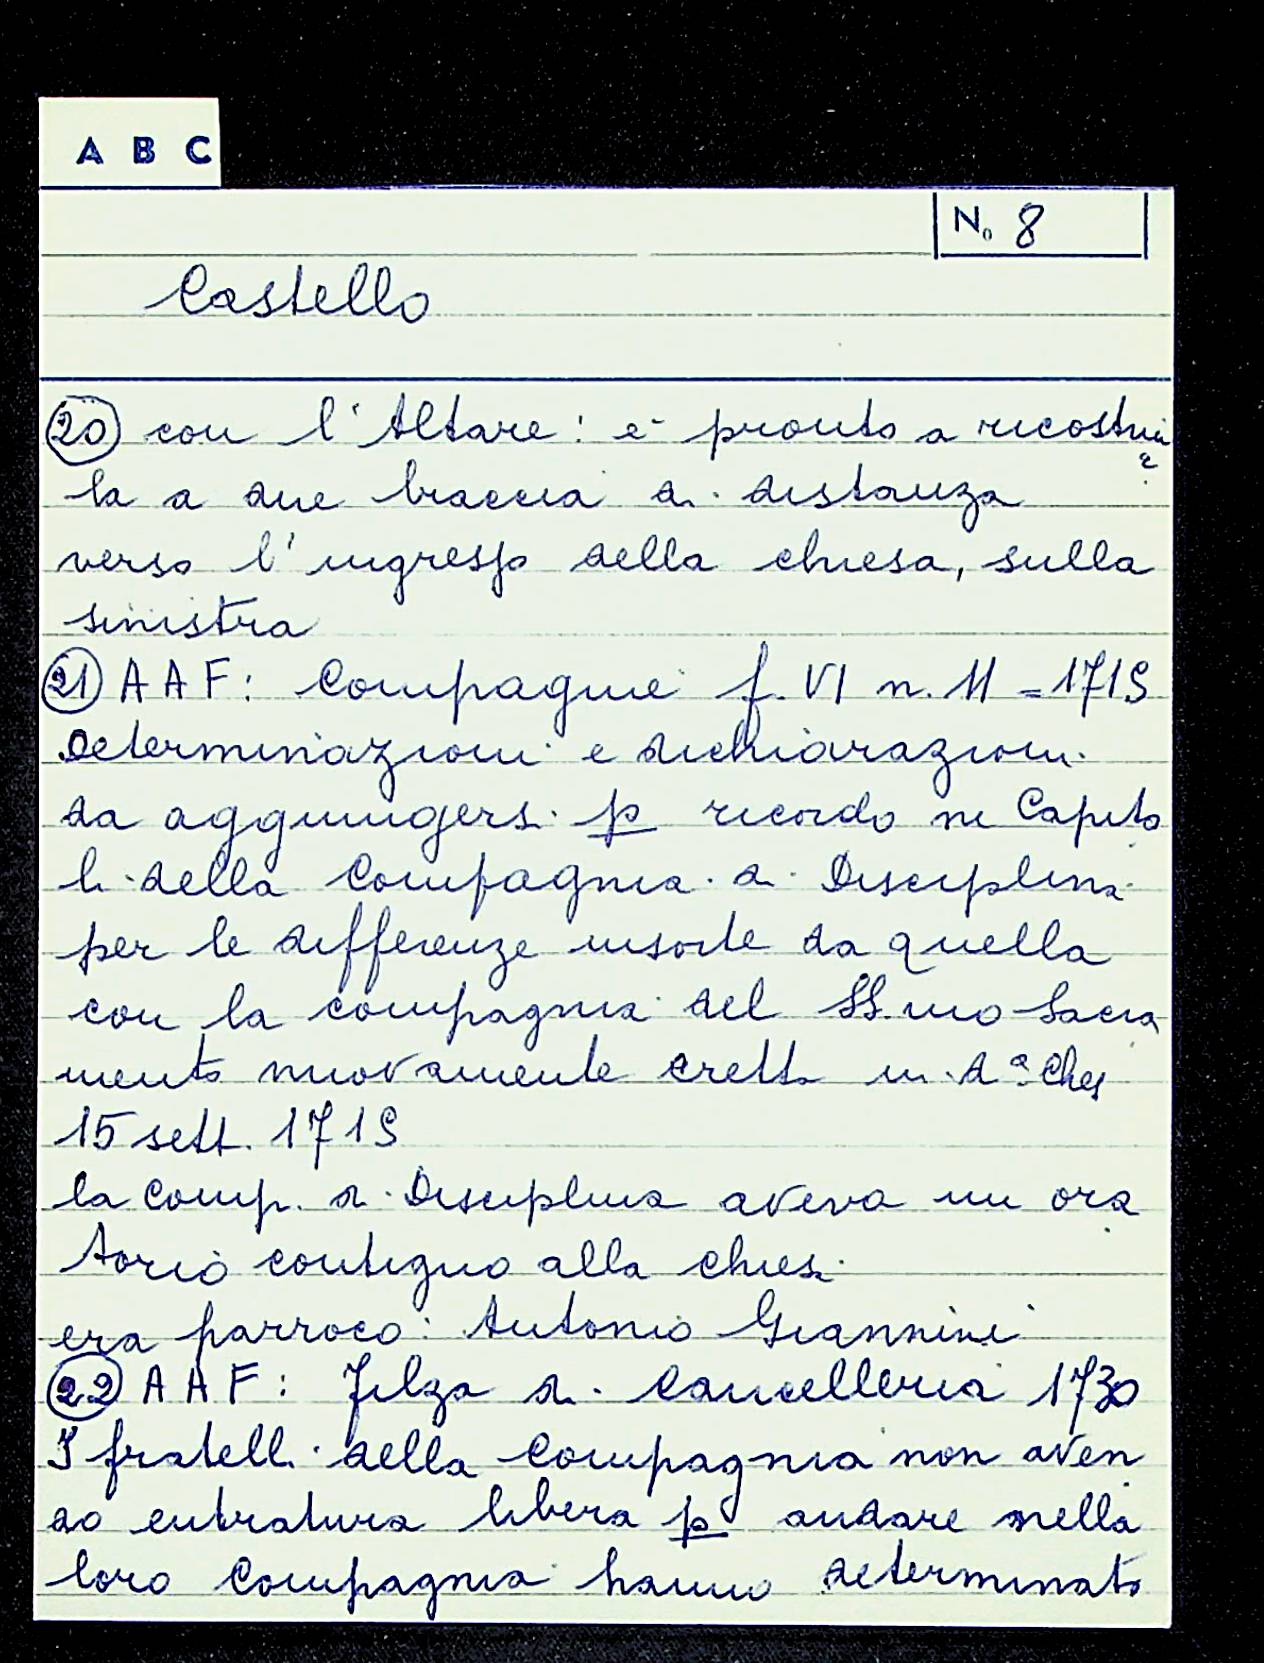 A B C
No 8
Castello
20 con l'Altare: è pronto a ricostruir
la a due braccia di distanza
verso l'ingresso della chiesa, sulla
sinistra
21 AAF: Compagnie f. VI n. 11 = 1719
Determinazioni e dichiarazioni
da aggiungersi p ricordo ne Capito
li della Compagnia di Disciplina
per le differenze insorte da quella
con la compagnia del SS.mo Sacra
mento nuovamente eretta in d.a Chies
15 sett. 1719
la Comp. di Disciplina aveva un ora
torio contiguo alla chiesa
era parroco: Antonio Giannini
22 AAF: Filza di Cancelleria 1730
I fratelli della Compagnia non aven
do entratura libera p andare nella
loro Compagnia hanno determinato